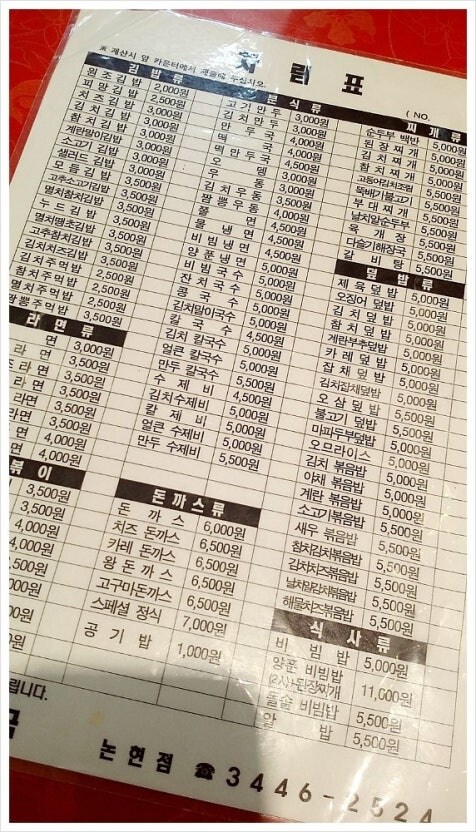 차림표
※ 계산시 앞 카운터에서
( NO.
김밥류
원조김밥 2,000원
피망김밥 2,500원
치즈김밥 3,000원
김치김밥 3,000원
참치김밥 3,000원
계란말이김밥 3,500원
소고기 김밥 3,000원
샐러드 김밥 3,000원
모듬김밥 3,500원
고추소고기김밥 3,500원
멸치참치김밥 3,500원
누드김밥 3,500원
멸치땡초김밥 3,500원
고추참치김밥 3,500원
김치치즈김밥 3,500원
김치주먹밥 2,500원
참치주먹밥 2,500원
멸치주먹밥 2,500원
짬뽕주먹밥 3,500원
라면류
면 3,000원
라면 3,500원
즈라면 3,500원
라면 3,500원
라면 3,500원
라면 4,000원
면 4,000원
볶이
3,500원
3,500원
4,000원
4,000원
4,000원
3,500원
3,500원
분식류
고기만두 3,000원
김치만두 3,000원
만두국 4,000원
떡국 4,000원
떡만두국 4,500원
오뎅 3,000원
우동 3,000원
김치우동 3,500원
짬뽕우동 4,000원
쫄면 4,000원
물냉면 4,500원
비빔냉면 4,500원
양푼냉면 5,000원
비빔국수 5,000원
잔치국수 4,000원
콩국수 5,000원
김치말이국수 5,000원
칼국수 4,500원
김치 칼국수 5,000원
얼큰 칼국수 5,000원
만두 칼국수 5,500원
수제비 4,500원
김치수제비 5,000원
칼제비 5,000원
얼큰 수제비 5,000원
만두 수제비 5,500원
돈까스류
돈까스 6,000원
치즈 돈까스 6,500원
카레 돈까스 6,500원
왕돈까스 6,500원
고구마돈까스 6,500원
스페셜 정식 7,000원
공기밥 1,000원
찌개류
순두부 백반 5,000원
된장찌개 5,000원
김치찌개 5,000원
참치찌개 5,000원
고등어김치조림 5,500원
뚝배기불고기 5,500원
부대찌개 5,500원
날치알순두부 5,500원
육개장 5,500원
다슬기해장국 5,500원
갈비탕 5,500원
덮밥류
제육덮밥 5,000원
오징어 덮밥 5,000원
김치덮밥 5,000원
참치덮밥 5,000원
계란부추덮밥 5,000원
카레덮밥 5,000원
잡채덮밥 5,000원
김치잡채덮밥 5,500원
오삼덮밥 5,500원
불고기 덮밥 5,500원
마파두부덮밥 5,500원
오므라이스 5,000원
김치 볶음밥 5,000원
야채 볶음밥 5,000원
계란 볶음밥 5,000원
소고기볶음밥 5,500원
새우 볶음밥 5,500원
참치김치볶음밥 5,500원
김치치즈볶음밥 5,500원
날치알김치볶음밥 5,500원
해물치즈볶음밥 5,500원
식사류
비빔밥 5,000원
양푼 비빔밥 (2人)+된장찌개 11,000원
돌솥 비빔밥 5,500원
알밥 5,500원
립니다.
국 논현점 ☎3446-2524